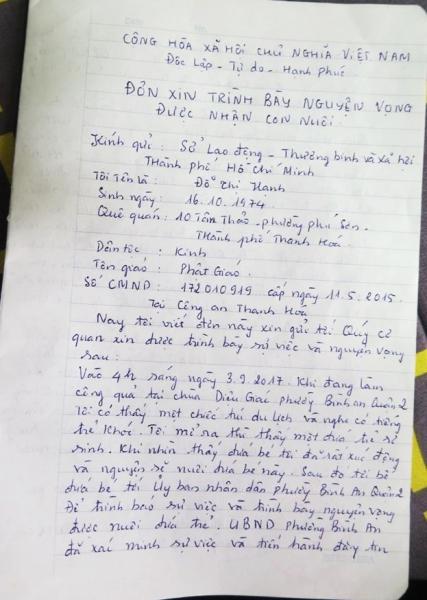 CỘNG HÒA XÃ HỘI CHỦ NGHĨA VIỆT NAM
Độc Lập - Tự do - Hạnh phúc
ĐƠN XIN TRÌNH BÀY NGUYỆN VỌNG
ĐƯỢC NHẬN CON NUÔI
Kính gửi : Sở Lao động - Thương binh và xã hội
Thành phố Hồ Chí Minh
Tôi tên là : Đỗ Thị Hạnh
Sinh ngày : 16.10.1974
Quê quán : 10 Tân Thảo - phường phú Sơn -
Thành phố Thanh Hoá
Dân tộc : Kinh
Tôn giáo : Phật Giáo
Số CMND : 172010919 cấp ngày 11.5.2015
Tại Công an Thanh Hoá
Nay tôi viết đơn này xin gửi tới Quý cơ
quan xin được trình bày sự việc và nguyện vọng
sau :
Vào 4h sáng ngày 3.9.2017. Khi đang làm
công quả tại chùa Diệu Giác phường Bình an Quận 2
Tôi có thấy một chiếc túi du lịch và nghe có tiếng
trẻ khóc. Tôi mở ra thì thấy một đứa trẻ sơ
sinh. Khi nhìn thấy đứa bé tôi đã rất xúc động
và nguyện sẽ nuôi đứa bé này. Sau đó tôi bế
đứa bé tới Ủy ban nhân dân phường Bình An Quận 2
Để trình báo sự việc và trình bày nguyện vọng
được nuôi đứa trẻ. UBND phường Bình An
đã xác minh sự việc và tiến hành đăng tin